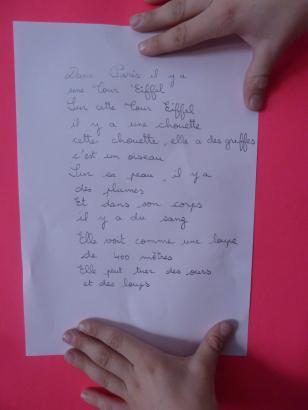 Dans Paris il y a
une Tour Eiffel
Sur cette Tour Eiffel
il y a une chouette
cette chouette, elle a des griffes
c'est un oiseau
Sur sa peau, il y a
des plumes
Et dans son corps
il y a du sang
Elle voit comme une loupe
de 400 mètres
Elle peut tuer des ours
et des loups